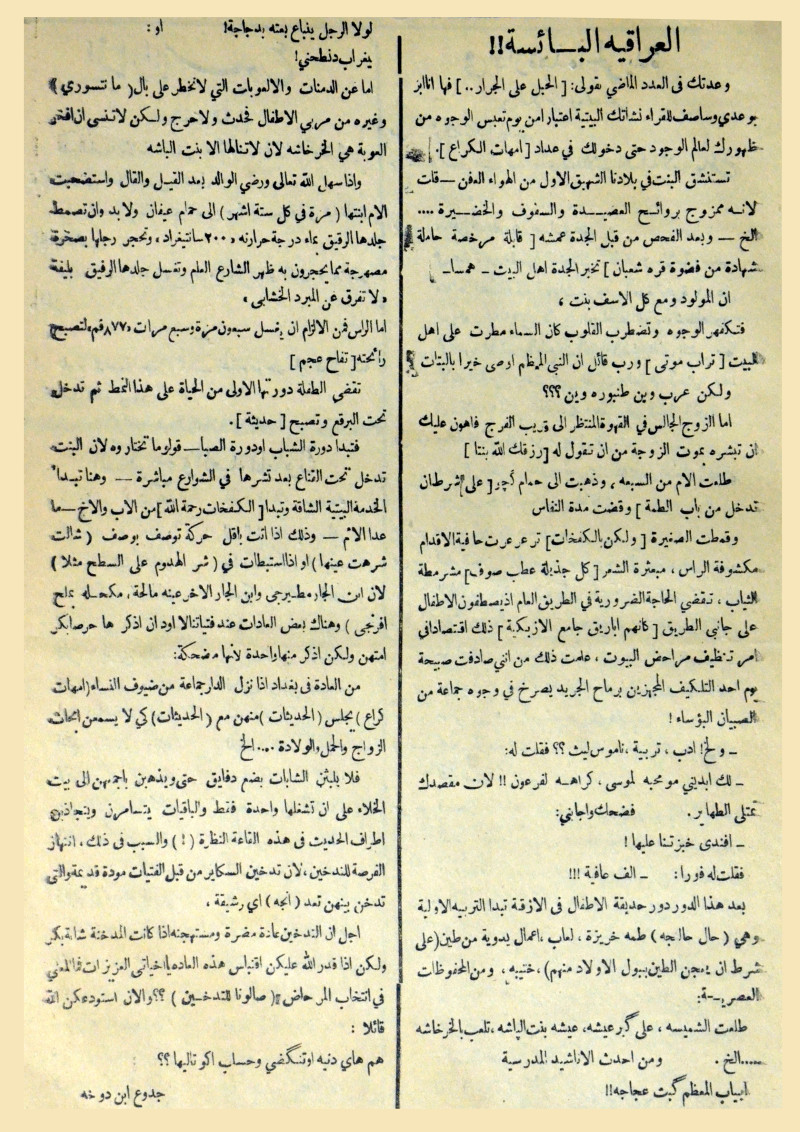 العراقيه البــائسة!!
وعدتك فى العدد الماضي بقولى: [ الحبل على الجرار .. ] فها انا ابر
بوعدي وساصف للقراء نشاتك البيتية اعتبارا من يوم تعبس الوجوه من
ظهورك لعالم الوجود حتى دخولك في عداد [ امهات الكراع ].
تستنشق البنت في بلادنا الشهيق الاول من الهواء العفن – قات
لانه ممزوج بروائح العصيــدة والسفوف والخضــيرة ....
الخ – وبعد الفحص من قبل الجدة عمشه [ قابلة مرخصة حاملة
شهادة من فضوة قره شعبان ] تخبر الجدة اهل البيت – همسا –
ان المولود ومع كل الاسف بنت ،
فتكفهر الوجوه وتضطرب القلوب كان السماء مطرت على اهل
البيت [ تراب موتى ] ورب قائل ان النبي المعظم اوصى خيرا بالبنات
ولكن عرب وين طنبوره وين ؟؟؟
اما الزوج الجالس في القهوة المنتظر الى قريب الفرج فاهون عليك
ان تبشره بموت الزوجة من ان تقول له [ رزقك الله بنتا ]
طلعت الام من السبعه ، وذهبت الى حمام كچو [ على شرط ان
تدخل من باب الطمة ] وقضت مدة النفاس
وقمطت الصغيرة [ ولكن بالكفخات ] ترعرعت حافية الاقدام
مكشوفة الراس ، مبعثرة الشعر [ كل جذيلة عطب صوف ] مشرمطة
الثياب ، تقضي الحاجة الضرورية في الطريق العام اذ يصطفون الاطفال
على جانبي الطريق [ كانهم اباريق جامع الازبكية ] ذلك اقتصادا في
امر تنظيف مراحض البيوت ، علمت ذلك من انني صادفت صبيحة
يوم احد التلكيف المجهزين برماح الجريد يصرخ في وجوه جماعة من
الصبيان البؤساء !
– ولخ! ادب ، تربية ، ناموس ليث ؟؟ فقلت له:
– لك ابديني مو محبه لموسى ، كراهــه لفرعون !! لان مقصدك
تمتلى الطهاير . فضحك واجابني:
– افندى خبزتنا عليها !
فقلت له فورا: – الف عافية !!!
بعد هذا الدور دور حديقة الاطفال فى الازقة تبدا التربيه الاولية
وهي ( حال حالجه ) طمه خريزة ، لعاب ، اعمال يدوية من طين (على
شرط ان يعجن الطين ببول الاولاد منهم ) ، ختيبه ، ومن المحفوظات
العصريــة:
طلعت الشميسه ، على گبر عيشه ، عيشه بنت الباشه ، تلعب بالخرخاشه
.....الخ . ومن احدث الاناشيد المدرسية
ابياب المعظم گبت عجاجه!!
لولا الرجل ينباع بعته بدجاجة! او :
يغراب دنطحني!
اما عن الدمنات والالعوبات التي لا تخطر على بال ( ما نتسوري )
وغيره من مربي الاطفال فحدث ولا حرج ولكن لا تنسى ان افخر
العوبة هي الخرخاشه لان لا تنالها الا بنت الباشه
واذا سهل الله تعالى ورضي الوالد بعد القيــل والقال واستصحبت
الام ابنتها ( مرة في كل ستة اشهر ) الى حمام عيفان ولا بد وان تصمط
جلدها الرقيق بماء درجة حرارته «٢٠٠» سانتيغراد ، وتحجر رجلها بصخرة
مصهرجة مما يحجرون به ظهر الشارع العام وتغسل جلدها الرقيق بليفة
« لا تفرق عن المبرد الخشابي »
اما الراس فمن الالزام ان يغسل سبعون مرة وسبع مرات «٨٧٧قم» لتصبح
رائحته [ تفاح عجم ]
تقضي الطفلة دورتها الاولى من الحياة على هذا النمط ثم تدخل
تحت البرقع وتصبح [ حديثة ].
فتبدا دورة الشباب او دورة الصبا – قولوا ما تختاروه لان البنت
تدخل تحت القناع بعد تشرها في الشوارع مباشرة – وهنا تبدا
الخدمة البيتية الشاقة وتبدا [ الكفخات رحمة الله ] من الاب والاخ – ما
عدا الام – وذلك اذا اتت باقل حركة توصف بوصف ( شالت
شرهت عينها ) او اذا استبطات في ( شر الهدوم على السطح مثلا )
لان ابن الجار مطيرجى وابن الجار الاخر عينه مالحة ، مكحــله بملح
افرنجي ) وهناك بعض العادات عند فتياتنا لا اود ان اذكرها حرصا بكر
امتهن ولكن اذكر منها واحدة لانها مضحكة:
من العادة في بغداد اذا نزل الدار جماعة من ضيوف النساء ( امهات
كراع ) يجلس ( الحديثات ) منهن مع ( الحديثات ) كي لا يسمعن ابحاث
الزواج والحمل والولادة .... الخ
فلا يلبثن الشابات بضع دقايق حتى ويذهبن باجمعهن الى بيت
الخلاء على ان تشغلها واحدة فقط والباقيات يتسامرن ويتجاذبن
اطراف الحديث فى هذه القاعة النظرة ( ! ) والسبب فى ذلك ، انتهاز
الفرصة للتدخين ، لان تدخين السكاير من قبل الفتيات مودة قديمة والتى
تدخن بينهن تعد ( انجه ) اي رشيقة ،
اجل ان التدخين عادة مضرة ومستهجنه اذا كانت المدخنة شابة بكر
ولكن اذا قدر الله عليكن اقتباس هذه العاده يا اخياتى العزيزات فما المعنى
في انتخاب المرحاض ( صالونا للتدخين ) ؟؟ والان استودعكن الله
قائلا :
هم هاي دنيه اوتنگضي وحساب اكو تاليها ؟؟
جدوع ابن دوخه